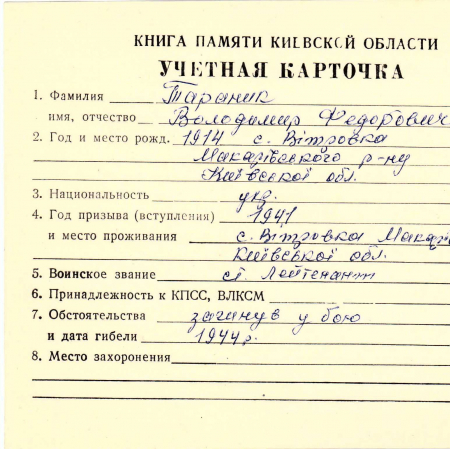 КНИГА ПАМЯТИ КИЕВСКОЙ ОБЛАСТИ
УЧЕТНАЯ КАРТОЧКА
1. Фамилия Тараник
имя, отчество Володимир Федорович
2. Год и место рожд. 1914 с. Вітровка
Макарівського р-ну
Київської обл.
3. Национальность укр.
4. Год призыва (вступления) 1941
и место проживания с. Вітровка Макар
Київської обл.
5. Воинское звание ст. Лейтенант
6. Принадлежность к КПСС, ВЛКСМ
7. Обстоятельства загинув у бою
и дата гибели 1944 р.
8. Место захоронения